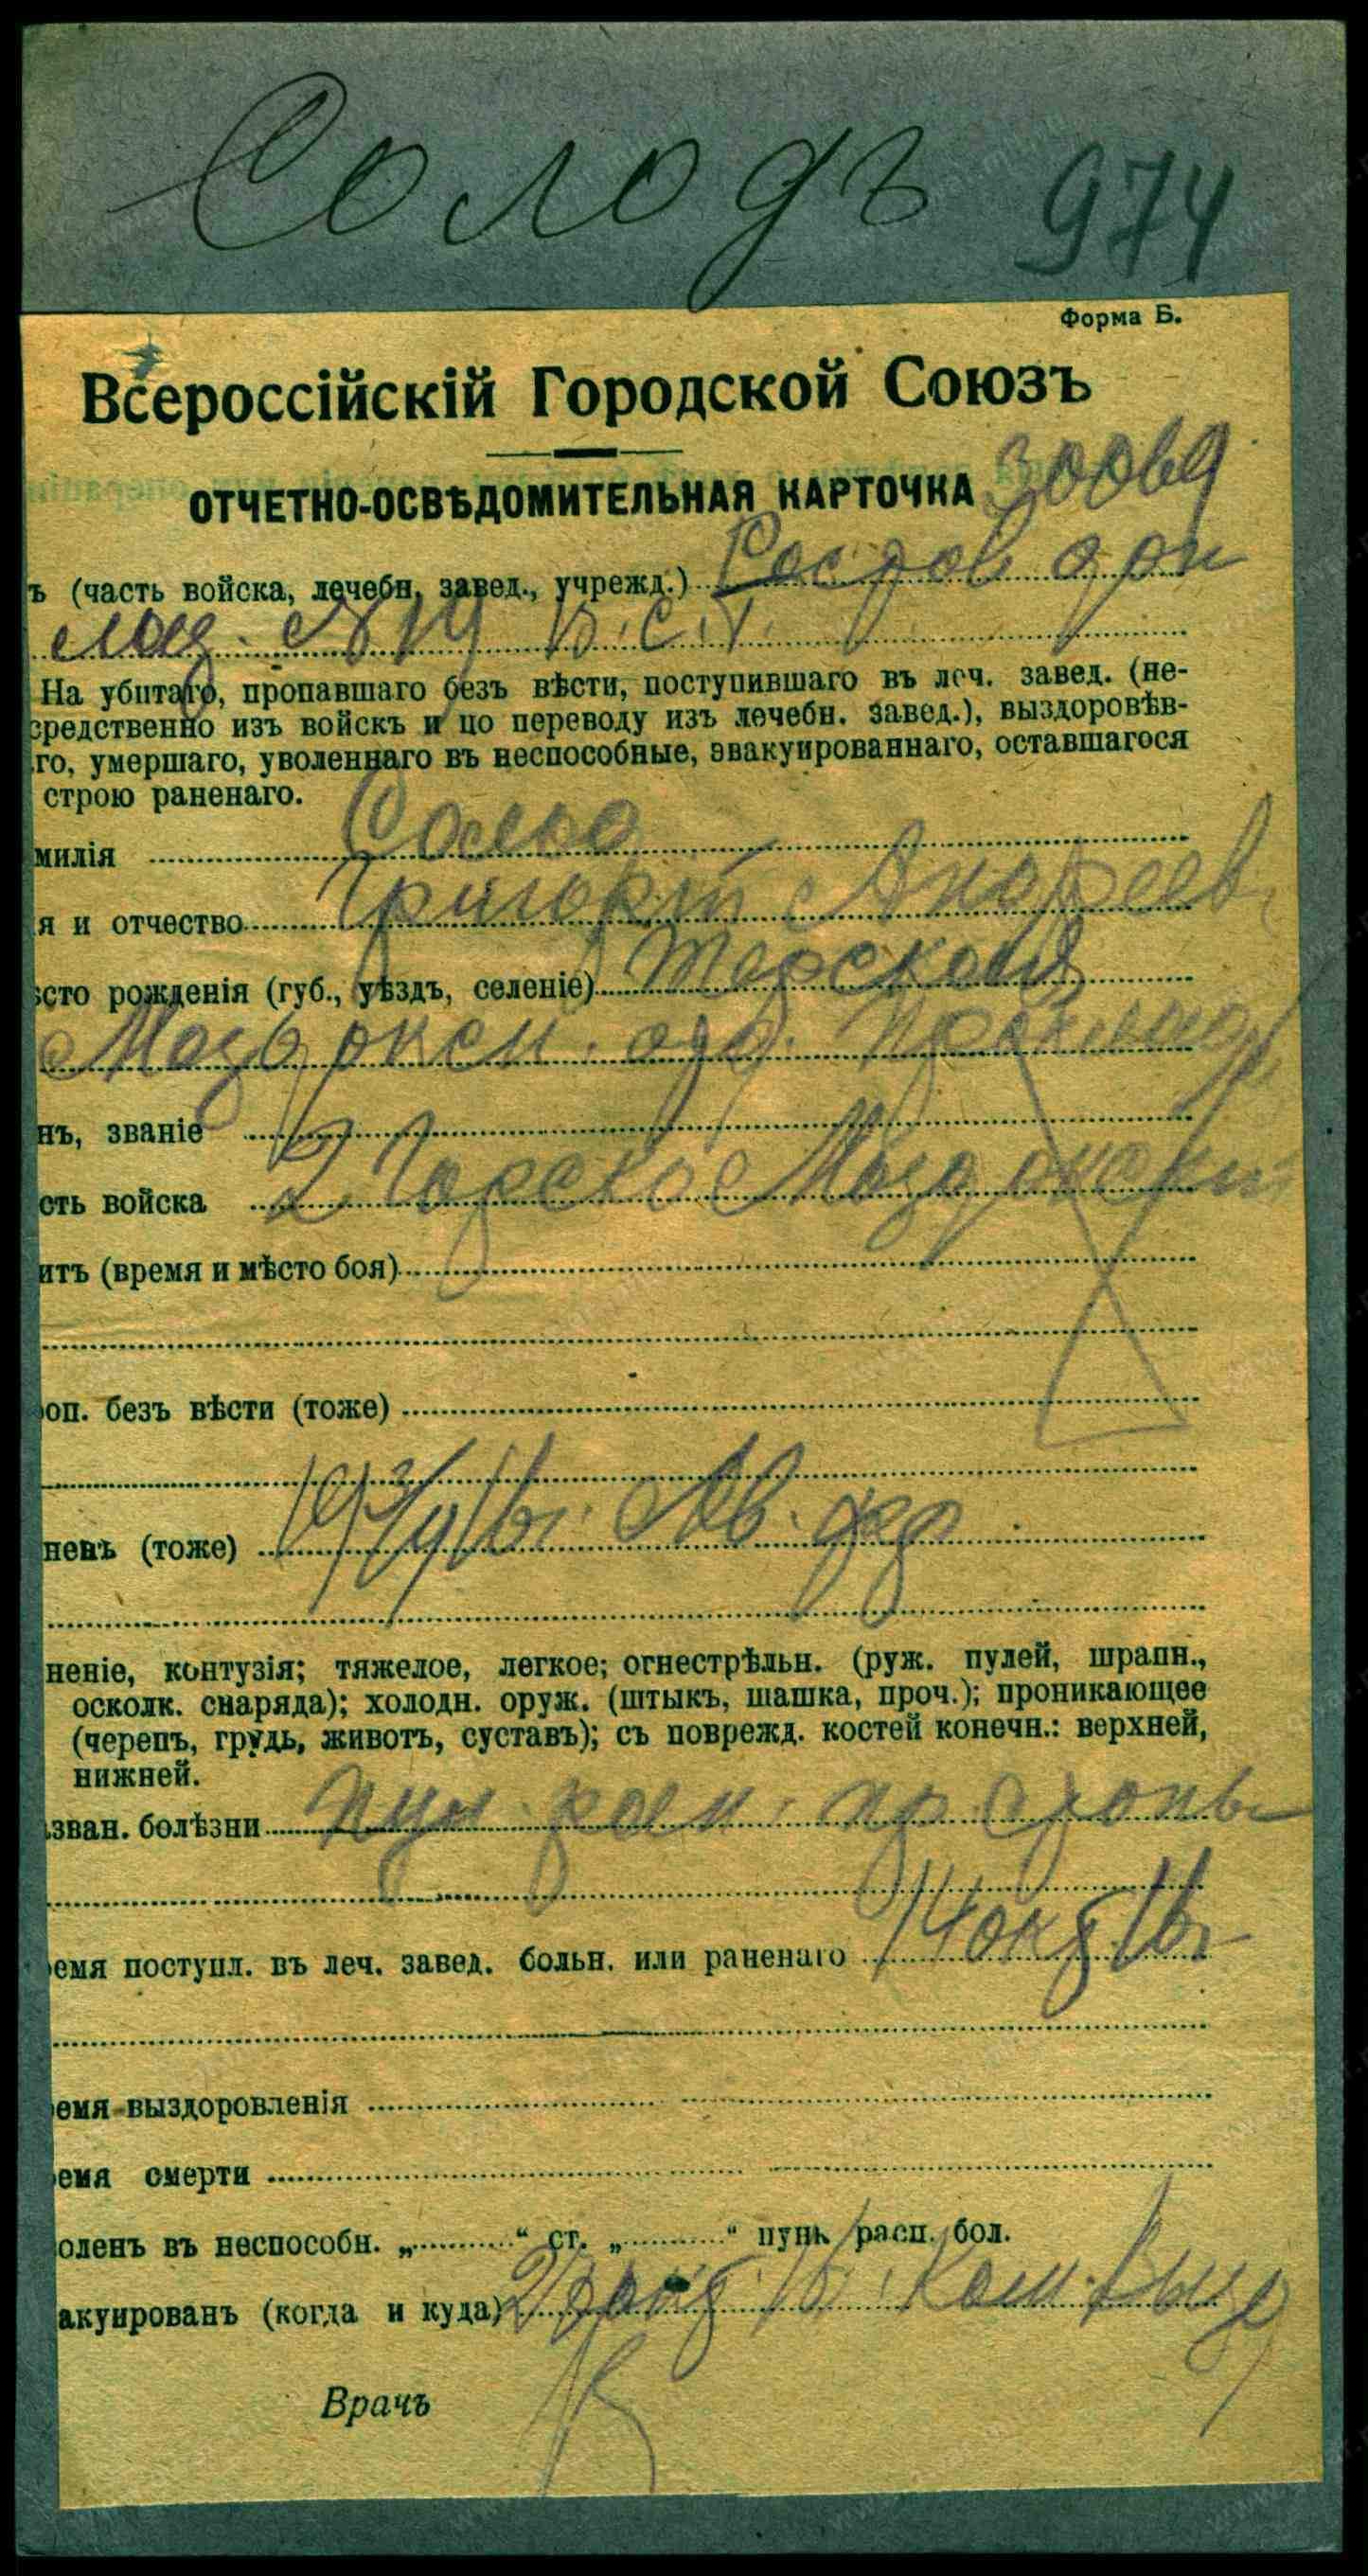 Солодъ 974
Форма Б.
Всероссійскій Городской Союзъ
ОТЧЕТНО-ОСВѢДОМИТЕЛЬНАЯ КАРТОЧКА 30069
ъ (часть войска, лечебн. завед., учрежд.) Ростов Дон
лаз. № 19 В.С.Г.
На убитаго, пропавшаго безъ вѣсти, поступившаго въ леч. завед. (не-
средственно изъ войскъ и по переводу изъ лечебн. завед.), выздоровѣв-
го, умершаго, уволеннаго въ неспособные, эвакуированнаго, оставшагося
строю раненаго.
милія Солод
я и отчество Григорій Андреев
сто рожденія (губ., уѣздъ, селеніе) Терской
Моздокск. отд.
нъ, званіе
сть войска 2 Горско Моздокски
итъ (время и мѣсто боя)
оп. безъ вѣсти (тоже)
ненъ (тоже)
неніе, контузія; тяжелое, легкое; огнестрѣльн. (руж. пулей, шрапн.,
осколк. снаряда); холодн. оруж. (штыкъ, шашка, проч.); проникающее
(черепъ, грудь, животъ, суставъ); съ поврежд. костей конечн.: верхней,
нижней.
зван. болѣзни пул. ран. пр. стопы
емя поступл. въ леч. завед. больн. или раненаго 14 окт 16 г
емя выздоровленія
емя смерти
оленъ въ неспособн. „ “ ст. „ “ пунк расп. бол.
акуированъ (когда и куда) Ком. Выз
Врачъ